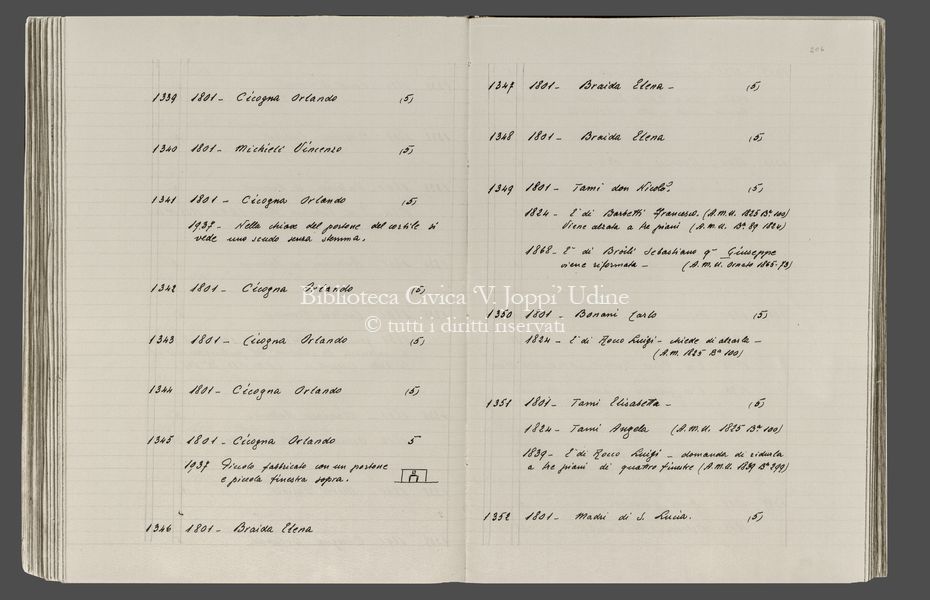 1339 1801 - Cicogna Orlando (5)
1340 1801 - Michieli Vincenzo (5)
1341 1801 - Cicogna Orlando (5)
1937 - Nella chiave del portone del cortile si
vede uno scudo senza stemma.
1342 1801 - Cicogna Orlando (5)
1343 1801 - Cicogna Orlando (5)
1344 1801 - Cicogna Orlando (5)
1345 1801 - Cicogna Orlando 5
1937 Piccolo fabbricato con un portone
e piccola finestra sopra.
1346 1801 - Braida Elena
206
1347 1801 - Braida Elena - (5)
1348 1801 - Braida Elena (5)
1349 1801 - Tami don Nicolò. (5)
1824 - E' di Barbetti Francesco. (A.M.U. 1825 Bª 100)
Viene alzata a tre piani (A.M.U. Bª 89 1824)
1868 - E' di Broili Sebastiano qm Giuseppe
viene riformata - (A.M.U. Ornato 1865-73)
1350 1801 - Bonani Carlo (5)
1824 - E' di Rocco Luigi - chiede di alzarla -
(A.M. 1825 Bª 100)
1351 1801 - Tami Elisabetta - (5)
1824 - Tami Angela (A.M.U. 1825 Bª 100)
1839 - E' di Rocco Luigi - domanda di ridurla
a tre piani di quattro finestre (A.M.U. 1839 Bª 299)
1352 1801 - Madri di S. Lucia. (5)
Biblioteca Civica 'V. Joppi' Udine
© tutti i diritti riservati